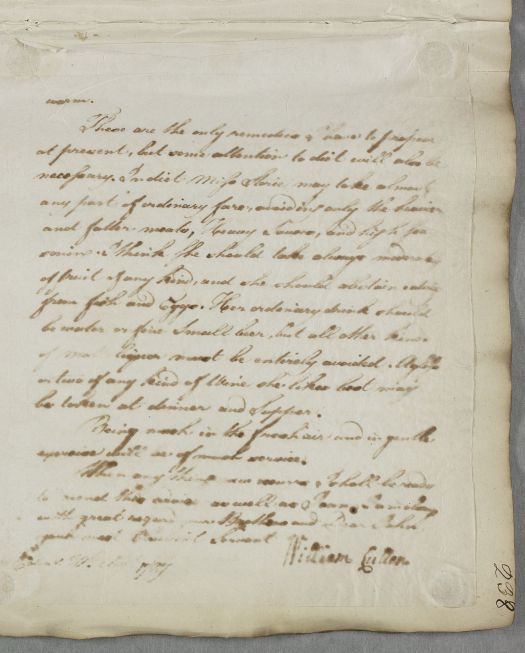 warm.
These are the only remedies I have to propose
at present, but some attention to diet will also be
necessary. In diet Miss may take almost
any part of ordinary fare, avoiding only the heavier
and fatter meats, Heavy Sauces, and high sea
I Think she should take always
of fruit of any kind, and she should abstain
from fish and Eggs. Her ordinary drink should
be water or fine Small beer, but all other kinds
of malt liquor must be entirely avoided. A glass
or two of any kind of Wine she likes best may
be taken at dinner and Supper.
Being much in the fresh air and in gentle
exercise will be of much service.
When any thing new occurs I shall be ready
to amend this advice as well as I can. I am
with great regard
most Obedient Servant
William Cullen
238